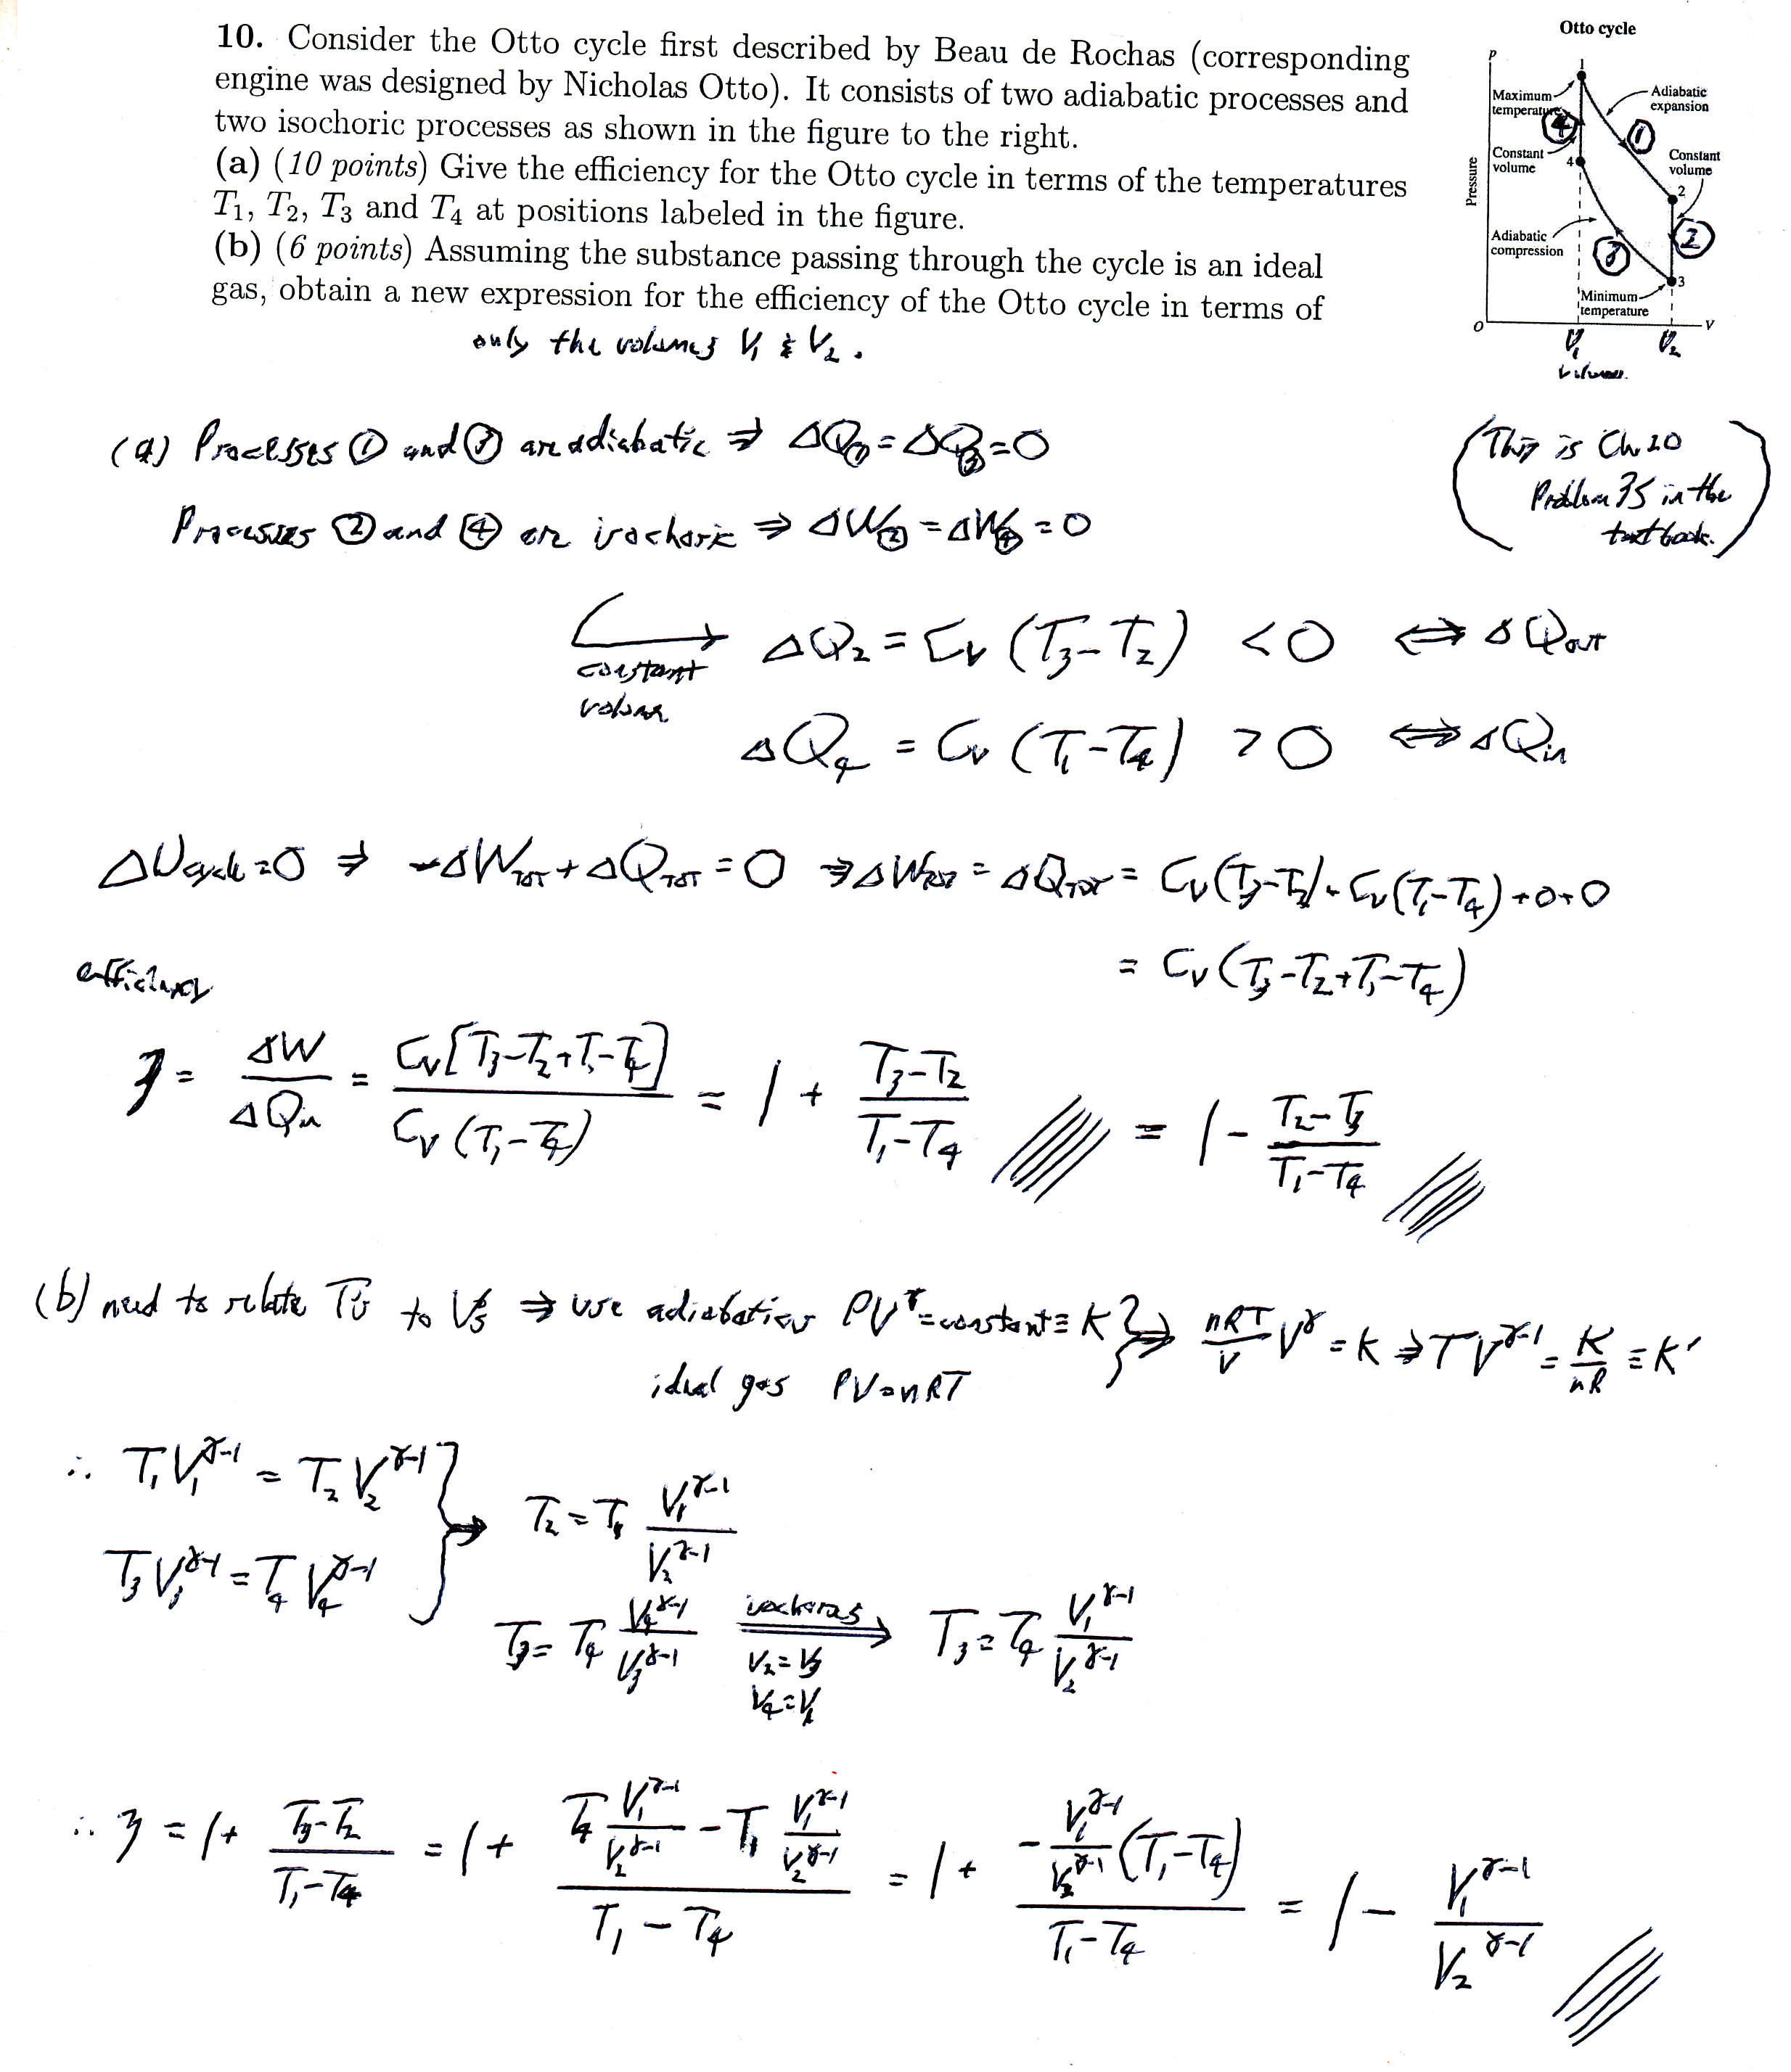 10. Consider the Otto cycle first described by Beau de Rochas (corresponding
engine was designed by Nicholas Otto). It consists of two adiabatic processes and
two isochoric processes as shown in the figure to the right.
(a) (10 points) Give the efficiency for the Otto cycle in terms of the temperatures
T₁, T₂, T₃ and T₄ at positions labeled in the figure.
(b) (6 points) Assuming the substance passing through the cycle is an ideal
gas, obtain a new expression for the efficiency of the Otto cycle in terms of
only the volumes V₁ & V₂.
Otto cycle
P
1
Maximum temperature
Adiabatic expansion
④
①
Constant volume
4
Constant volume
2
Pressure
Adiabatic compression
③
②
3
Minimum temperature
O
V
V₁
V₂
volume.
(a) Processes ① and ③ are adiabatic ⇒ ΔQ① = ΔQ③ = 0
(This is Ch 20
Problem 35 in the
textbook.)
Processes ② and ④ are isochoric ⇒ ΔW② = ΔW④ = 0
constant volume
ΔQ₂ = C_V (T₃-T₂) < 0 ⇔ ΔQout
ΔQ₄ = C_V (T₁-T₄) > 0 ⇔ ΔQin
ΔUcycle = 0 ⇒ -ΔW_TOT + ΔQ_TOT = 0 ⇒ ΔW_TOT = ΔQ_TOT = C_V(T₃-T₂) + C_V(T₁-T₄) + 0 + 0
= C_V(T₃-T₂+T₁-T₄)
efficiency
η = ΔW/ΔQin = C_V[T₃-T₂+T₁-T₄] / C_V(T₁-T₄) = 1 + (T₃-T₂)/(T₁-T₄) = 1 - (T₂-T₃)/(T₁-T₄)
(b) need to relate T's to V's ⇒ use adiabatics PV^γ = constant ≡ K } ⇒ (nRT/V) V^γ = K ⇒ TV^(γ-1) = K/nR ≡ K'
ideal gas PV = nRT
∴ T₁V₁^(γ-1) = T₂V₂^(γ-1)
T₃V₃^(γ-1) = T₄V₄^(γ-1)
⇒ T₂ = T₁ V₁^(γ-1)/V₂^(γ-1)
T₃ = T₄ V₄^(γ-1)/V₃^(γ-1)
isochoras
V₂ = V₃
V₄ = V₁
T₃ = T₄ V₁^(γ-1)/V₂^(γ-1)
∴ η = 1 + (T₃-T₂)/(T₁-T₄) = 1 + (T₄ V₁^(γ-1)/V₂^(γ-1) - T₁ V₁^(γ-1)/V₂^(γ-1))/(T₁-T₄) = 1 + (-V₁^(γ-1)/V₂^(γ-1) (T₁-T₄))/(T₁-T₄) = 1 - V₁^(γ-1)/V₂^(γ-1)